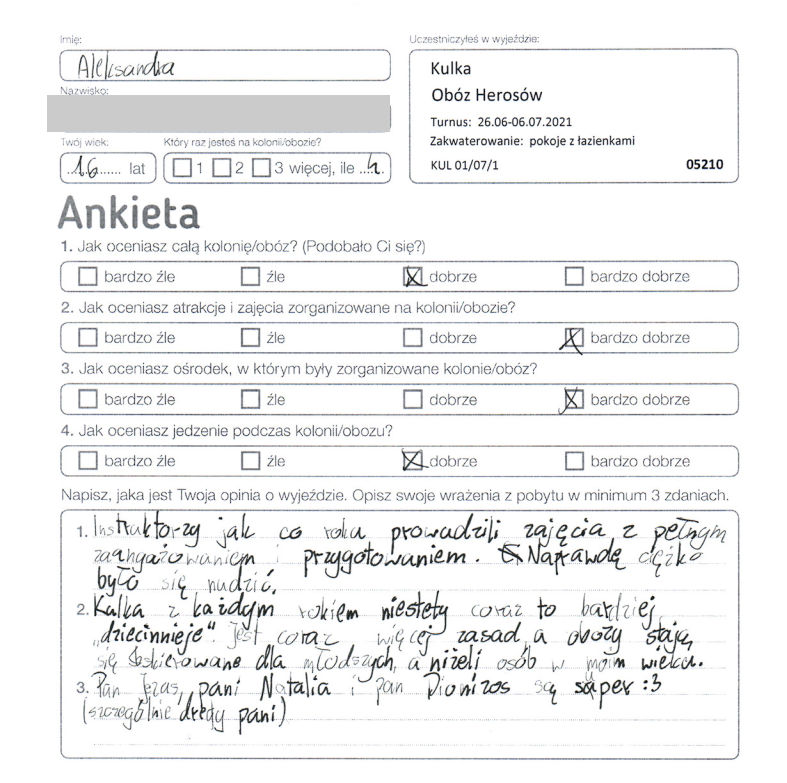 Imię:
Aleksandra
Uczestniczyłeś w wyjeździe:
Kulka
Obóz Herosów
Turnus: 26.06-06.07.2021
Zakwaterowanie: pokoje z łazienkami
KUL 01/07/1 05210
Nazwisko:
Twój wiek:
16 lat
Który raz jesteś na kolonii/obozie?
1 2 3 więcej, ile ...4.
Ankieta
1. Jak oceniasz całą kolonię/obóz? (Podobało Ci się?)
bardzo źle źle dobrze bardzo dobrze
2. Jak oceniasz atrakcje i zajęcia zorganizowane na kolonii/obozie?
bardzo źle źle dobrze bardzo dobrze
3. Jak oceniasz ośrodek, w którym były zorganizowane kolonie/obóz?
bardzo źle źle dobrze bardzo dobrze
4. Jak oceniasz jedzenie podczas kolonii/obozu?
bardzo źle źle dobrze bardzo dobrze
Napisz, jaka jest Twoja opinia o wyjeździe. Opisz swoje wrażenia z pobytu w minimum 3 zdaniach.
1. Instruktorzy jak co roku prowadzili zajęcia z pełnym
zaangażowaniem i przygotowaniem. Naprawdę ciężko
było się nudzić.
2. Kulka z każdym rokiem niestety coraz to bardziej
„dziecinnieje". Jest coraz więcej zasad, a obozy stają
się skierowane dla młodszych, a niżeli osób w moim wieku.
3. Pan pani Natalia i pan Dionizos są super :3
(szczególnie dredy pani)